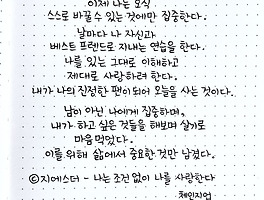 이제 나는 오직
스스로 바꿀 수 있는 것에만 집중한다.
날마다 나 자신과
베스트 프렌드로 지내는 연습을 한다.
나를 있는 그대로 이해하고
제대로 사랑하려 한다.
내가 나의 진정한 팬이 되어 오늘을 사는 것이다.
남이 아닌 나에게 집중하며,
내가 하고 싶은 것들을 해보며 살기로
마음먹었다.
이를 위해 삶에서 중요한 것만 남겼다.
ⓒ지에스더 - 나는 조건 없이 나를 사랑한다
체인지업